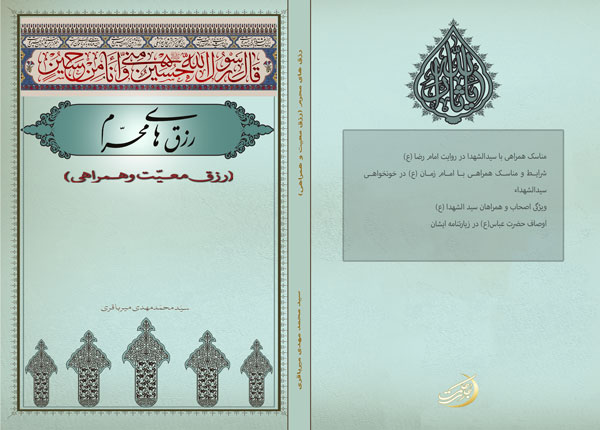 قال رسول الله حسین منی و انا من حسین
رزق های محرّم
(رزق معیّت و همراهی)
سید محمدمهدی میرباقری
رزق های محرم (رزق معیت و همراهی)
سید محمد مهدی میرباقری
مناسک همراهی با سیدالشهدا در روایت امام رضا (ع)
شرایط و مناسک همراهی با امام زمان (ع) در خونخواهی
سیدالشهداء
ویژگی اصحاب و همراهان سید الشهدا (ع)
اوصاف حضرت عباس(ع) در زیارتنامه ایشان